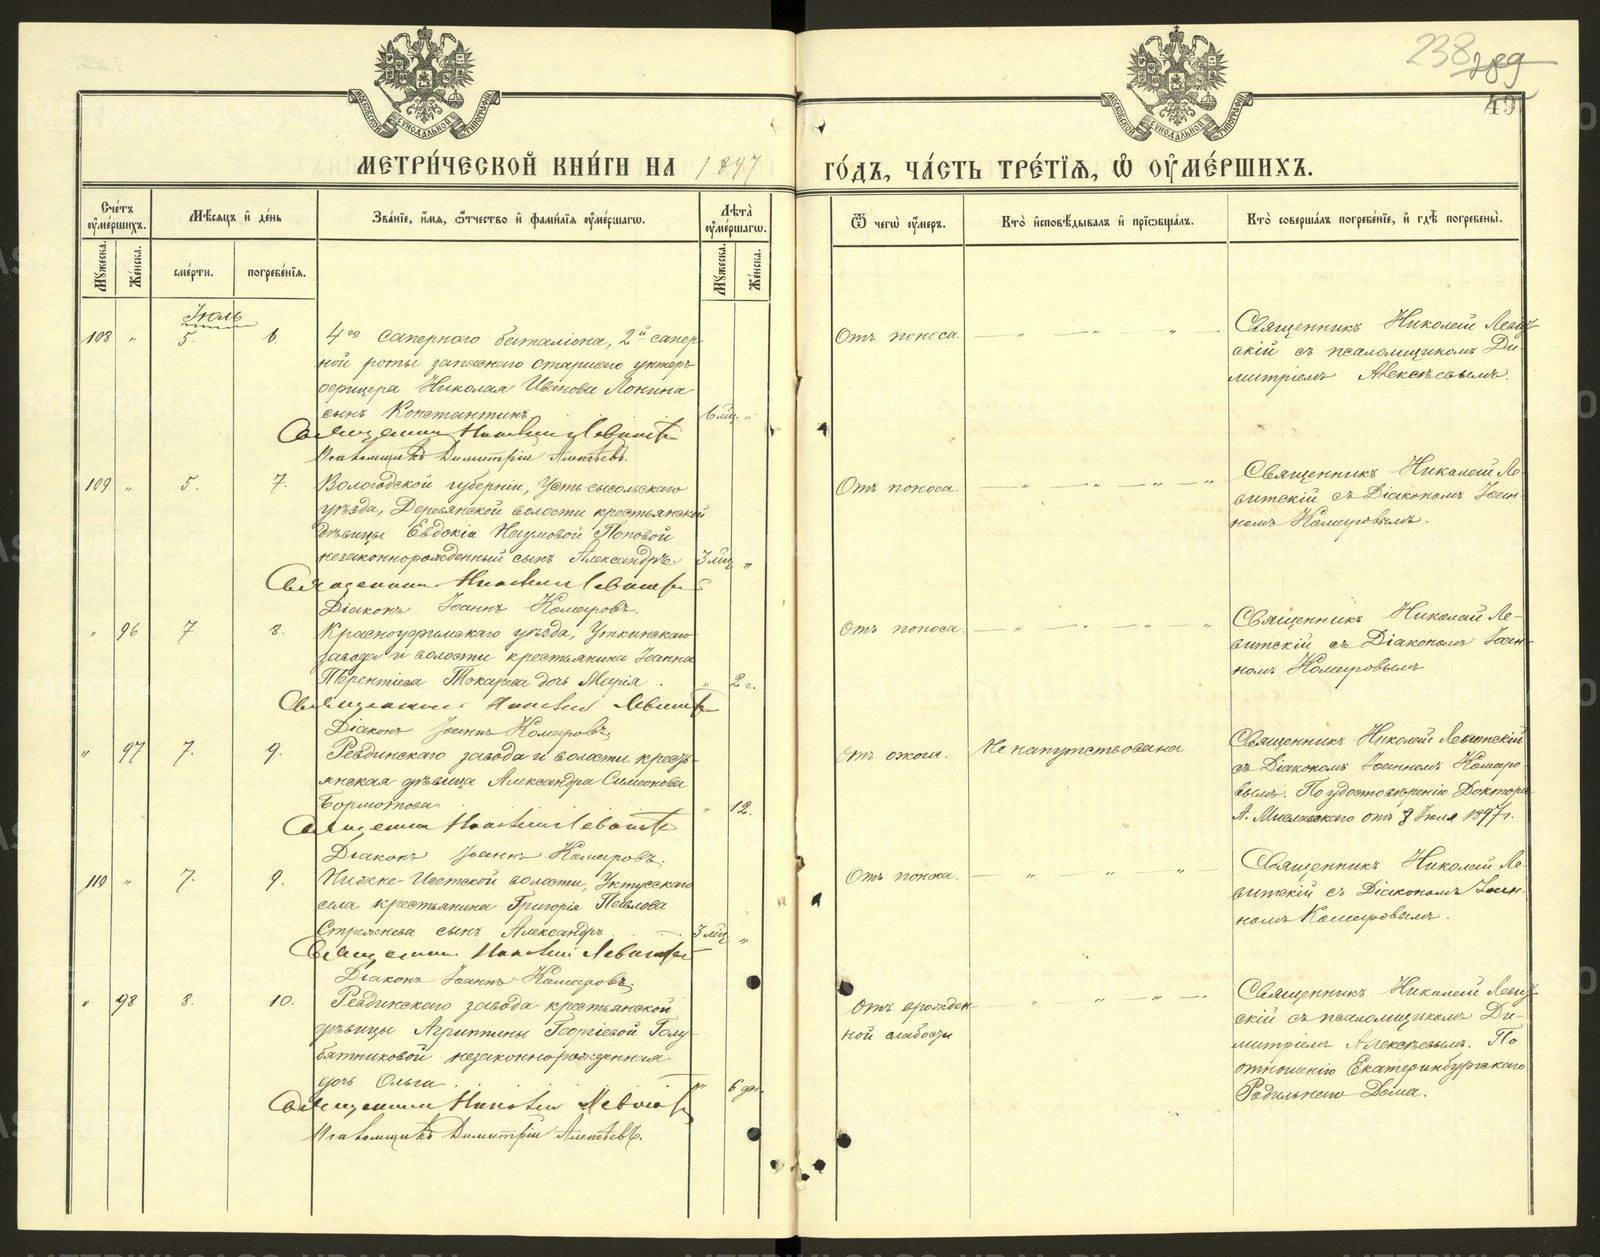 238 289
49
МОСКОВСКОЙ СѴНОДАЛЬНОЙ ТИПОГРАФІИ
МОСКОВСКОЙ СѴНОДАЛЬНОЙ ТИПОГРАФІИ
МЕТРИ́ЧЕСКОЙ КНИ́ГИ НА 1897 ГО́ДЪ, ЧА́СТЬ ТРЕ́ТІЯ, Ѡ ОУМЕ́РШИХЪ.
Сче́тъ оумершихъ.
Мѣсяцъ и де́нь
Зва́ніе, и́мя, о́тчество и фами́лія оуме́ршагѡ.
Лѣта̀ оуме́ршагѡ.
Ѿ чегѡ̀ оу́меръ.
Кто̀ исповѣ́дывалъ и пріѡбща́лъ.
Кто̀ соверша́лъ погребе́ніе, и гдѣ̀ погребены̀.
Мꙋжеска.
Же́нска.
сме́рти.
погребе́нія.
Мꙋжеска.
Же́нска.
Іюль
108 " 5. 6.
4го сапернаго баталіона, 2й сапер-
ной роты запаснаго старшаго унтеръ
офицера Николая Иванова Лонина
сынъ Константинъ 6 мц. "
Священникъ Николай Левитскій
Псаломщикъ Димитрій Алексѣевъ.
Отъ поноса.
Священникъ Николай Левит-
скій съ псаломщикомъ Ди-
митріемъ Алексѣевымъ.
109 " 5. 7.
Вологодской губерніи, Усть-сысольскаго
уѣзда, Деревянской волости крестьянской
дѣвицы Евдокіи Наумовой Поповой
незаконнорожденный сынъ Александръ. 3 мц. "
Священникъ Николай Левитскій
Діаконъ Іоаннъ Комаровъ.
Отъ поноса.
Священникъ Николай Ле-
витскій съ Діакономъ Іоан-
номъ Комаровымъ.
" 96 7 8.
Красноуфимскаго уѣзда, Уткинскаго
завода и волости крестьянина Іоанна
Терентіева Токарева дочь Марія. " 2 г.
Священникъ Николай Левитскій
Діаконъ Іоаннъ Комаровъ.
Отъ поноса.
Священникъ Николай Ле-
витскій съ Діакономъ Іоан-
номъ Комаровымъ
" 97 7. 9.
Ревдинскаго завода и волости кресть-
янская дѣвица Александра Симеонова
Бормотова " 12.
Священникъ Николай Левитскій
Діаконъ Іоаннъ Комаровъ.
Отъ ожога.
Не напутствована
Священникъ Николай Левитскій
съ Діакономъ Іоанномъ Комаро-
вымъ. По удостовѣренію Доктора
А. Миславскаго отъ 8 Іюля 1897 г.
110 " 7. 9.
Нижне-Исетской волости, Уктусскаго
села крестьянина Григорія Павлова
Стрежнева сынъ Александръ. 3 мц. "
Священникъ Николай Левитскій
Діаконъ Іоаннъ Комаровъ.
Отъ поноса.
Священникъ Николай Ле-
витскій съ Діакономъ Іоан-
номъ Комаровымъ.
" 98 8. 10.
Ревдинскаго завода крестьянской
дѣвицы Агриппины Георгіевой Голу-
бятниковой незаконнорожденная
дочь Ольга. " 6 дн.
Священникъ Николай Левитскій
Псаломщикъ Димитрій Алексѣевъ.
Отъ врожден-
ной слабости
Священникъ Николай Левит-
скій съ псаломщикомъ Ди-
митріемъ Алексѣевымъ. По
отношенію Екатеринбургскаго
Родильнаго Дома.